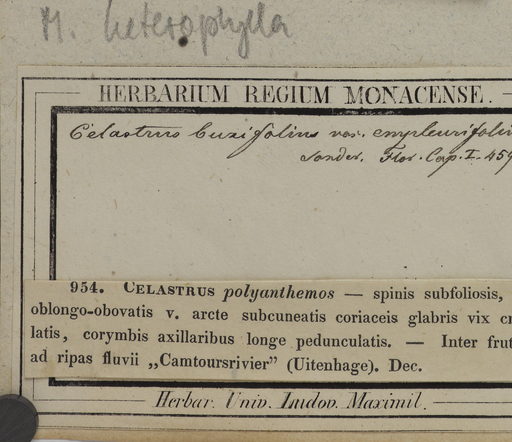 M. heterophylla
HERBARIUM REGIUM MONACENSE.
Celastrus buxifolius var. empleurifolius
Sonder. Flor. Cap. I. 459
954. CELASTRUS polyanthemos — spinis subfoliosis,
oblongo-obovatis v. arcte subcuneatis coriaceis glabris vix cr
latis, corymbis axillaribus longe pedunculatis. — Inter frut
ad ripas fluvii „Camtoursrivier” (Uitenhage). Dec.
Herbar. Univ. Ludov. Maximil.